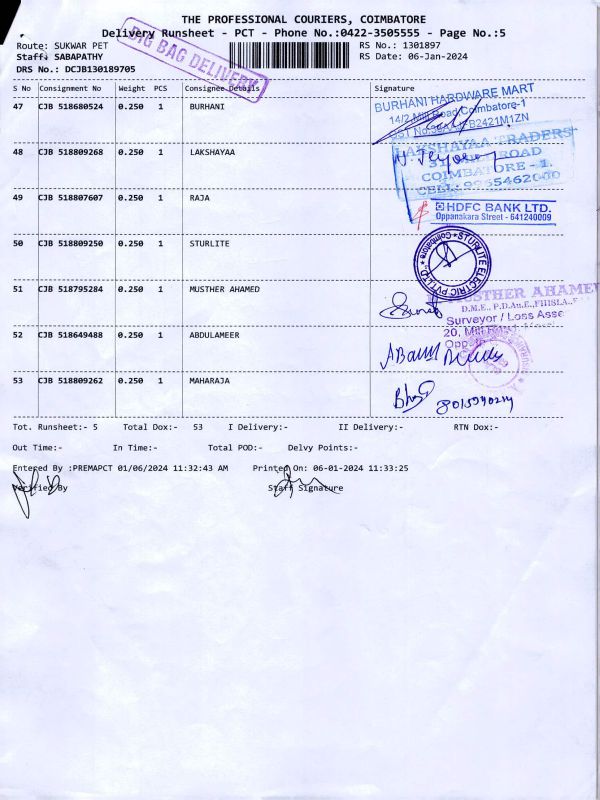 THE PROFESSIONAL COURIERS, COIMBATORE
Delivery Runsheet - PCT - Phone No.:0422-3505555 - Page No.:5
BIG BAG DELIVERY
Route: SUKWAR PET RS No.: 1301897
Staff: SABAPATHY RS Date: 06-Jan-2024
DRS No.: DCJB130189705
S No Consignment No Weight PCS Consignee Details Signature
47 CJB 518680524 0.250 1 BURHANI
BURHANI HARDWARE MART
14/2, Mill Road, Coimbatore-1
48 CJB 518809268 0.250 1 LAKSHAYAA
LAKSHAYAA TRADERS
ROAD
COIMBATORE - 1.
CELL: 9965462000
49 CJB 518807607 0.250 1 RAJA
HDFC BANK LTD.
Oppanakara Street - 641240009
50 CJB 518809250 0.250 1 STURLITE
STURLITE ELECTRIC PVT LTD. Coimbatore
51 CJB 518795284 0.250 1 MUSTHER AHAMED
MUSTHER AHAMED
Surveyor / Loss Asse
20, Mill Road
52 CJB 518649488 0.250 1 ABDULAMEER
53 CJB 518809262 0.250 1 MAHARAJA
Tot. Runsheet:- 5 Total Dox:- 53 I Delivery:- II Delivery:- RTN Dox:-
Out Time:- In Time:- Total POD:- Delvy Points:-
Entered By :PREMAPCT 01/06/2024 11:32:43 AM Printed On: 06-01-2024 11:33:25
Verified By Staff Signature